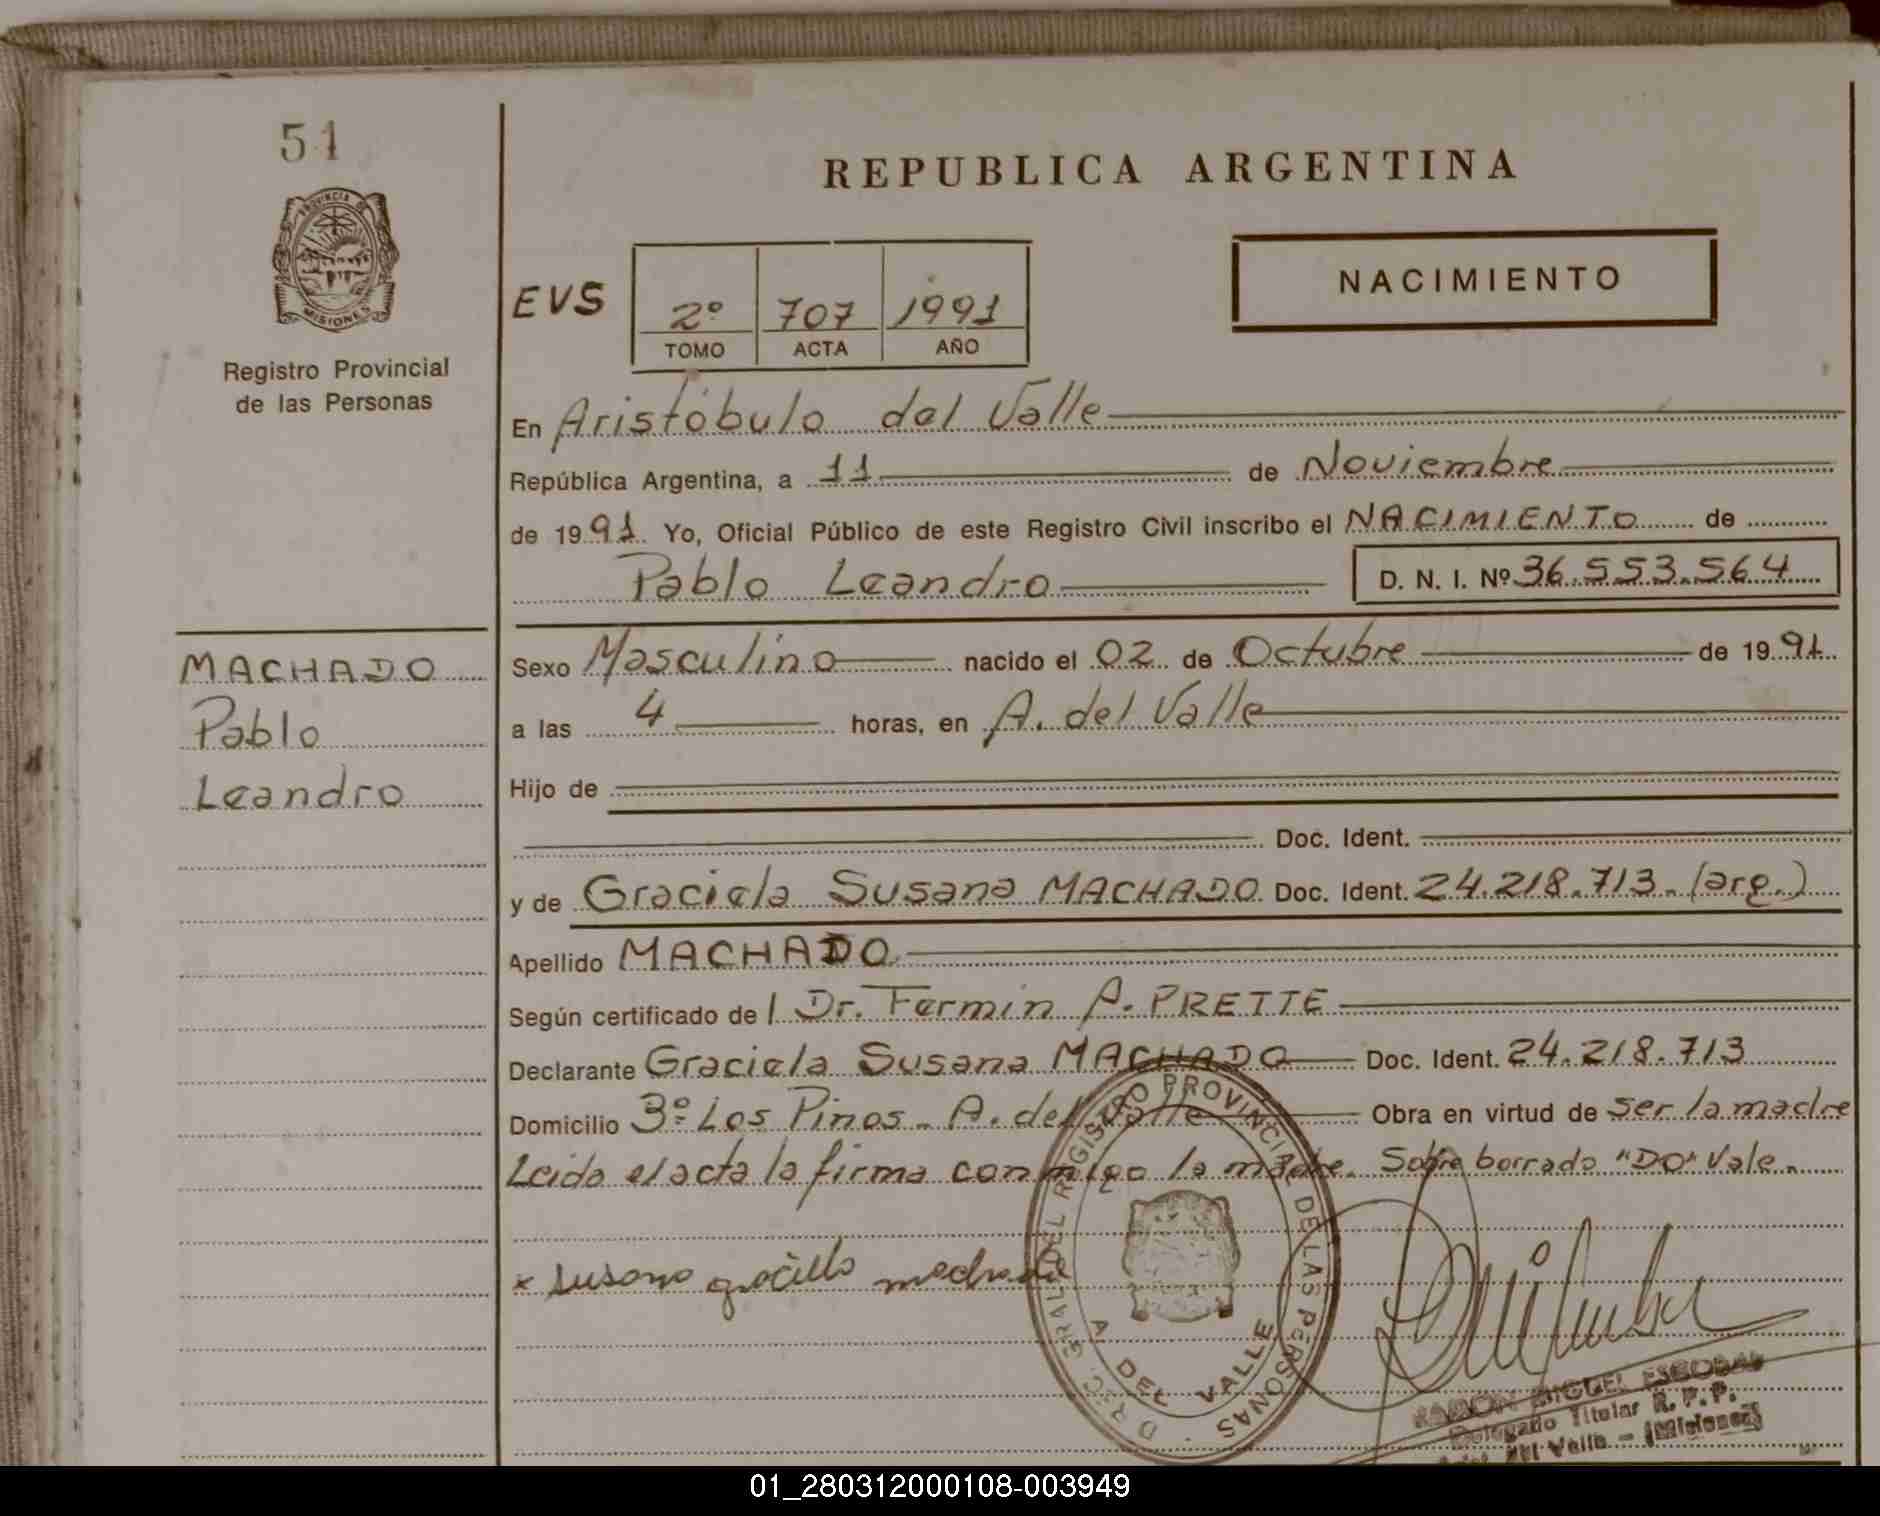 51
PROVINCIA DE
MISIONES
Registro Provincial
de las Personas
MACHADO
Pablo
Leandro
REPUBLICA ARGENTINA
NACIMIENTO
EVS
2º 707 1991
TOMO ACTA AÑO
En Aristóbulo del Valle
República Argentina, a 11 de Noviembre
de 1991 Yo, Oficial Público de este Registro Civil inscribo el NACIMIENTO de
Pablo Leandro D. N. I. Nº 36.553.564
Sexo Masculino nacido el 02 de Octubre de 1991
a las 4 horas, en A. del Valle
Hijo de
Doc. Ident.
y de Graciela Susana MACHADO Doc. Ident. 24.218.713.(arg.)
Apellido MACHADO
Según certificado de l Dr. Fermin A. PRETTE
Declarante Graciela Susana MACHADO Doc. Ident. 24.218.713
Domicilio 3º Los Pinos - A. del Valle Obra en virtud de ser la madre
Leida el acta la firma conmigo la madre. Sobre borrado "DO" Vale.
DIREC. GRAL. DEL REGISTRO PROVINCIAL DE LAS PERSONAS
A DEL VALLE
RAMON MIGUEL ESCOBAR
Delegado Titular R. P. P.
del Valle - (Misiones)
01_280312000108-003949